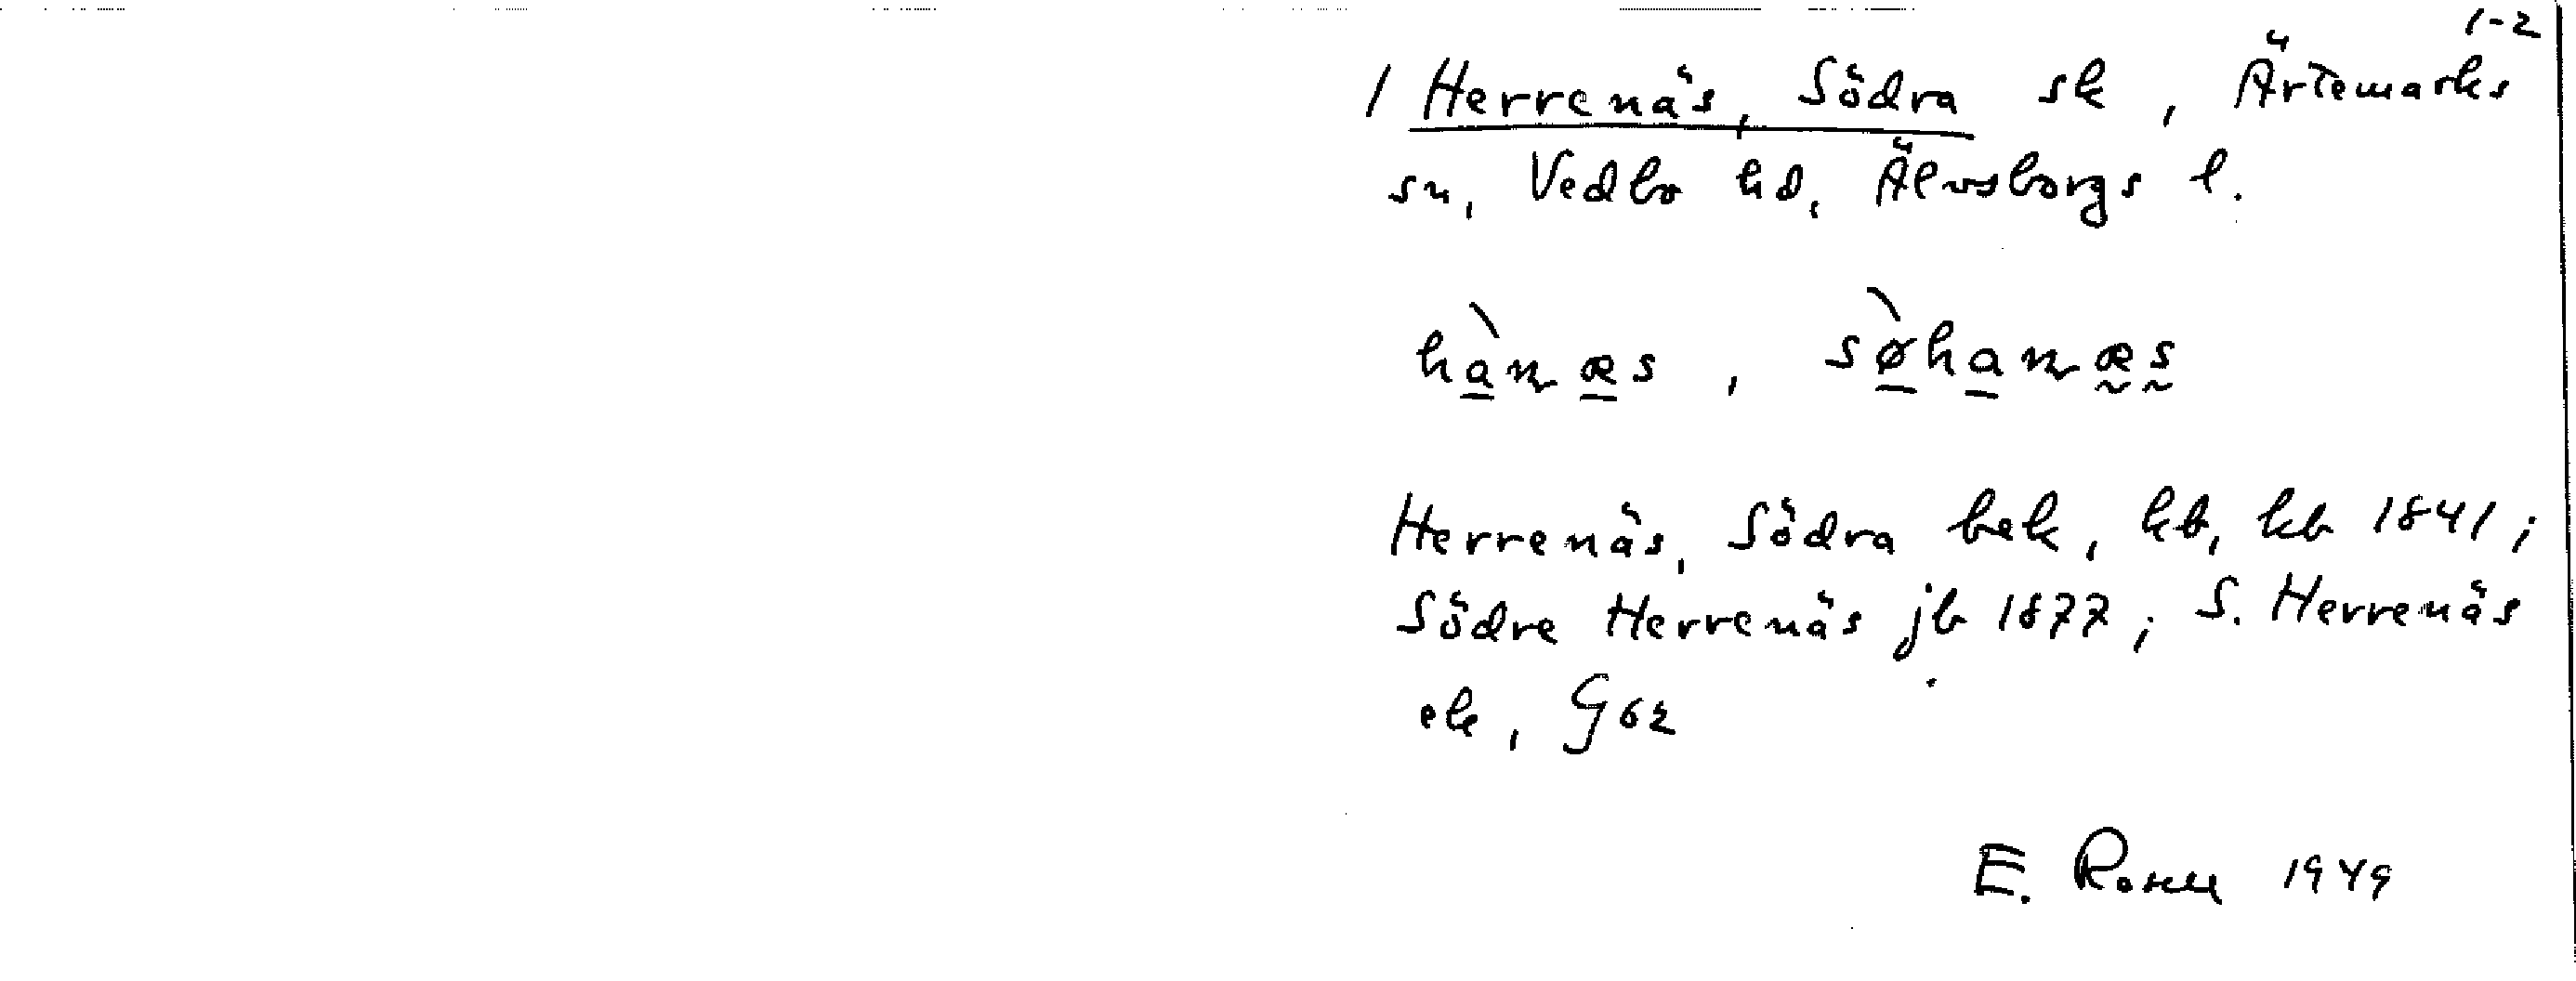 1-2
1 Herrenäs, Södra sk, Ärtemarks
sn, Vedbo hd, Älvsborgs l.
hànæs, sø̀hanæs
Herrenäs, Södra bek, kb 1841;
Södre Herrenäs jb 1877; S. Herrenäs
ek,
E. Rosell 1949